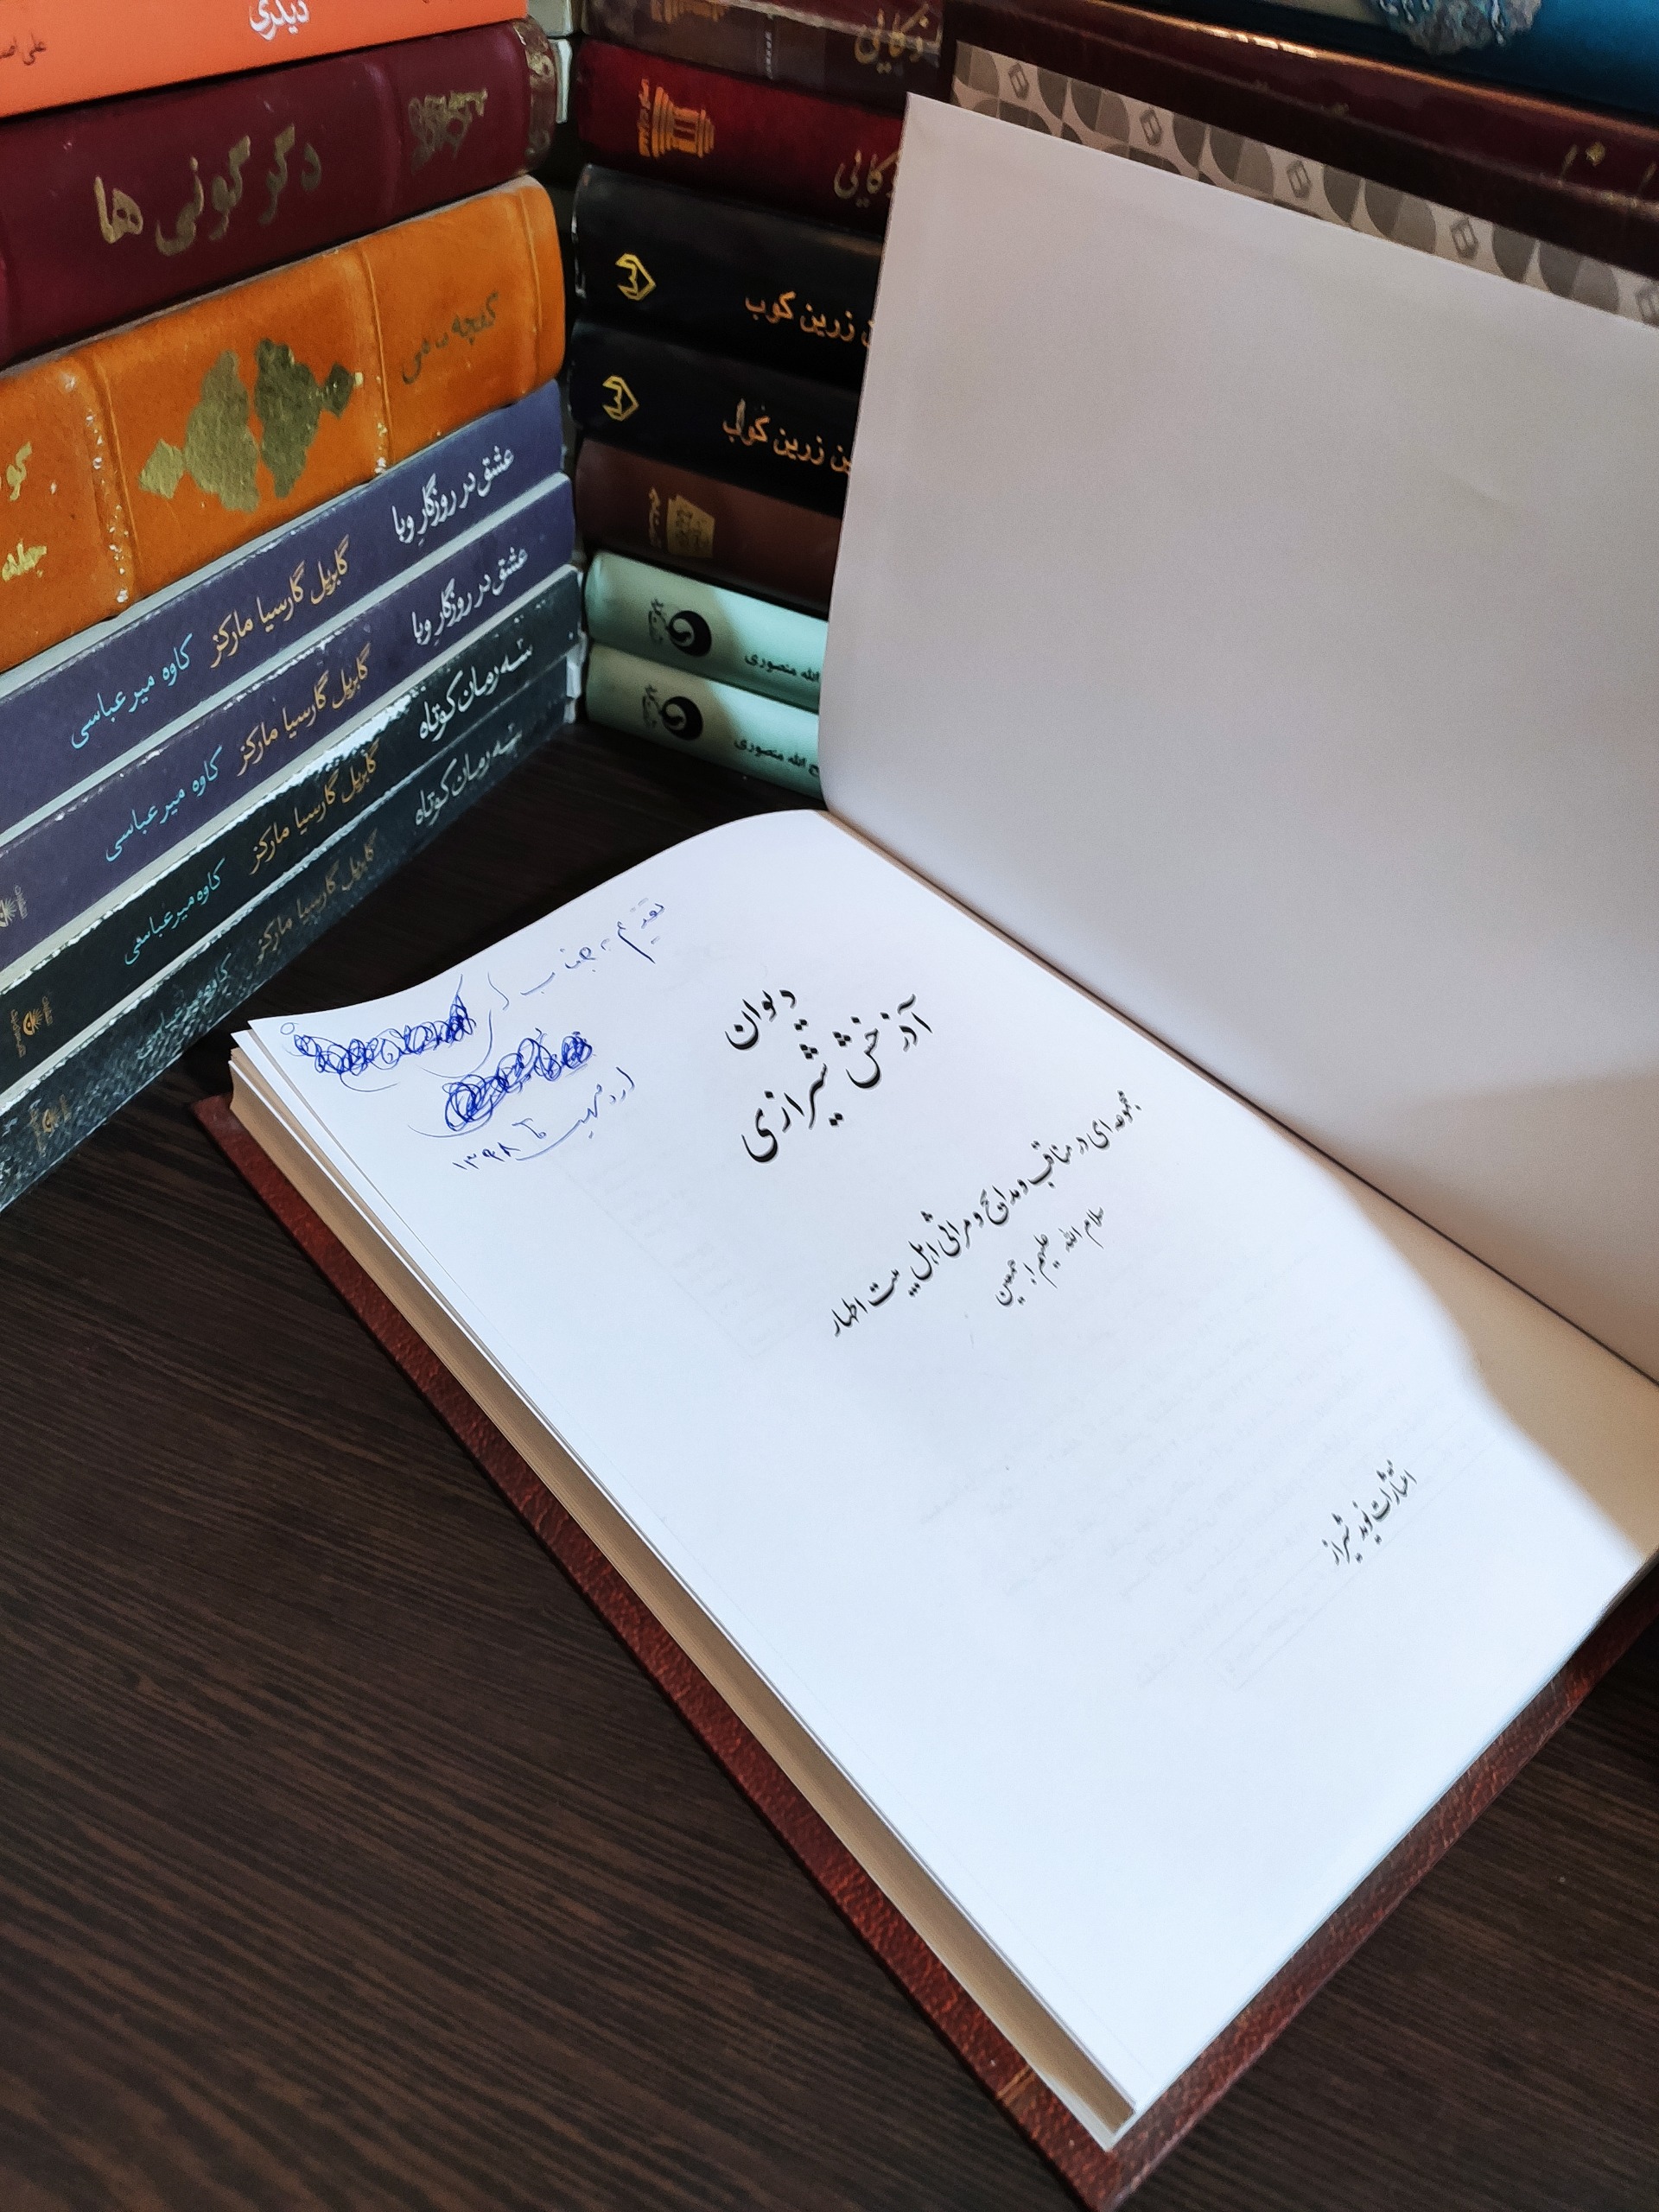 دیوان
آذرخش شیرازی
مجموعه ای در مناقب و مدایح و مراثی اهل بیت اطهار
سلام الله علیهم اجمعین
انتشارات نوید شیراز
تقدیم به جناب
اردیبهشت ۱۳۹۸
دیدری
علی اصغ
دگرگونی ها
کفچه
جلد
عشق در روزگار وبا گابریل گارسیا مارکز کاوه میرعباسی
عشق در روزگار وبا گابریل گارسیا مارکز کاوه میرعباسی
سه رمان کوتاه گابریل گارسیا مارکز کاوه میرعباسی
سه رمان کوتاه گابریل گارسیا مارکز کاوه میرعباسی
ذکائی
کائی
زرین کوب
ین زرین کوب
الله منصوری
ح الله منصوری